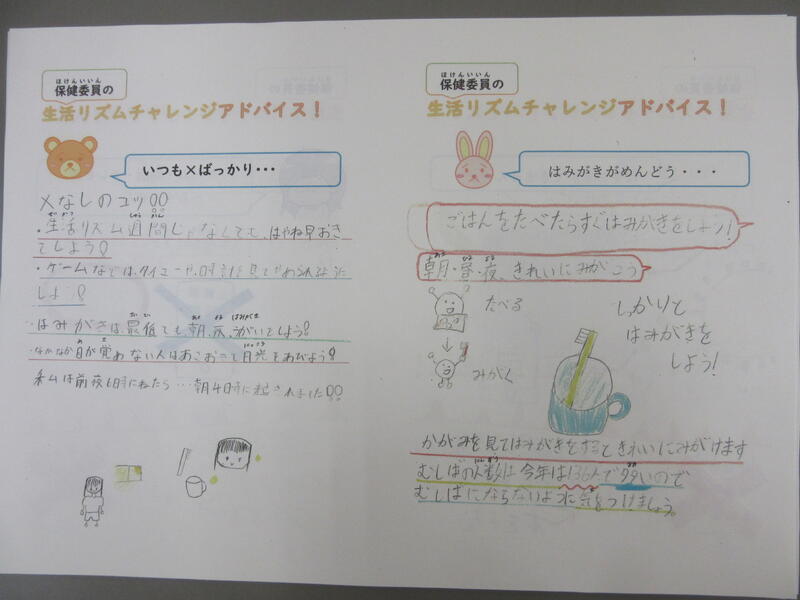 ほけんいいん
保健委員の
生活リズムチャレンジアドバイス！
いつも×ばっかり・・・
×なしのコツ!!
・生活リズム週間じゃなくても、はやね早おき
をしよう!
・ゲームなどは、タイマーや、時計を見てやめられるように
しよう!
・はみがきは、最低でも朝、夜、うがいをしよう!
・なかなか目が覚めない人はあさおきて日光をあびよう!
私は前夜6時にねたら…朝4時に起きれました!!
ほけんいいん
保健委員の
生活リズムチャレンジアドバイス！
はみがきがめんどう・・・
ごはんをたべたらすぐはみがきをしよう!
朝・昼・夜、きれいにみがこう
たべる
↓
みがく
しっかりと
はみがきを
しよう!
かがみを見てはみがきをするときれいにみがけます
むしばの人数は今年は136人で多いので
むしばにならないように気をつけましょう。